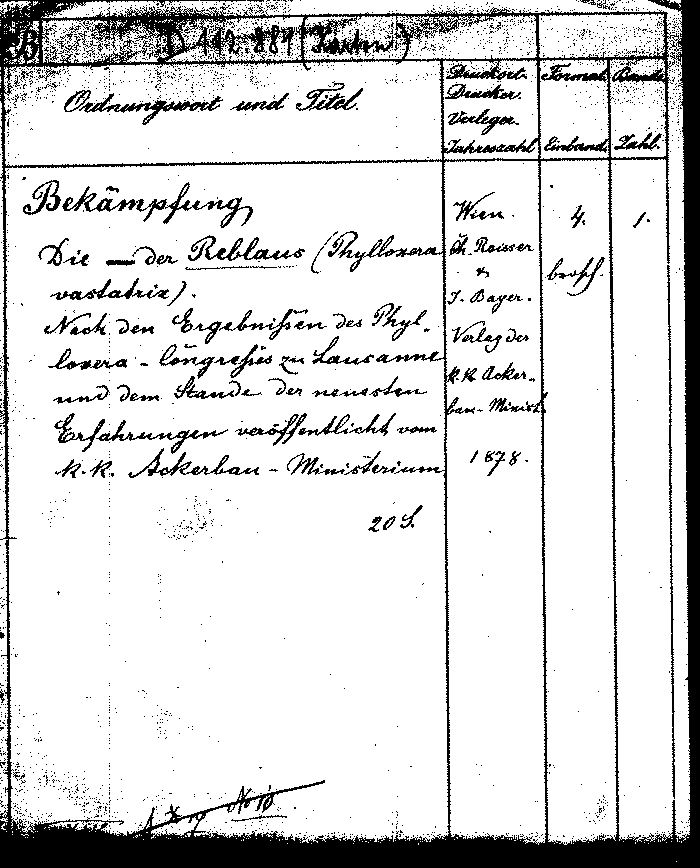 B
D 112.884 (Karton)
Ordnungswort und Titel.
Druckort.
Drucker.
Verleger.
Jahreszahl
Format
Einband.
Bände
Zahl.
Bekämpfung
Die — der Reblaus (Phylloxera
vastatrix).
Nach den Ergebnißen des Phyl-
loxera-Congreßes zu Lausanne
und dem Stande der neuesten
Erfahrungen veröffentlicht vom
k. k. Ackerbau-Ministerium
20 S.
Wien.
Th. Reisser
&
J. Bayer.
Verlag der
k. k. Acker-
bau-Minist.
1878.
4.
brosch.
1.
No 10